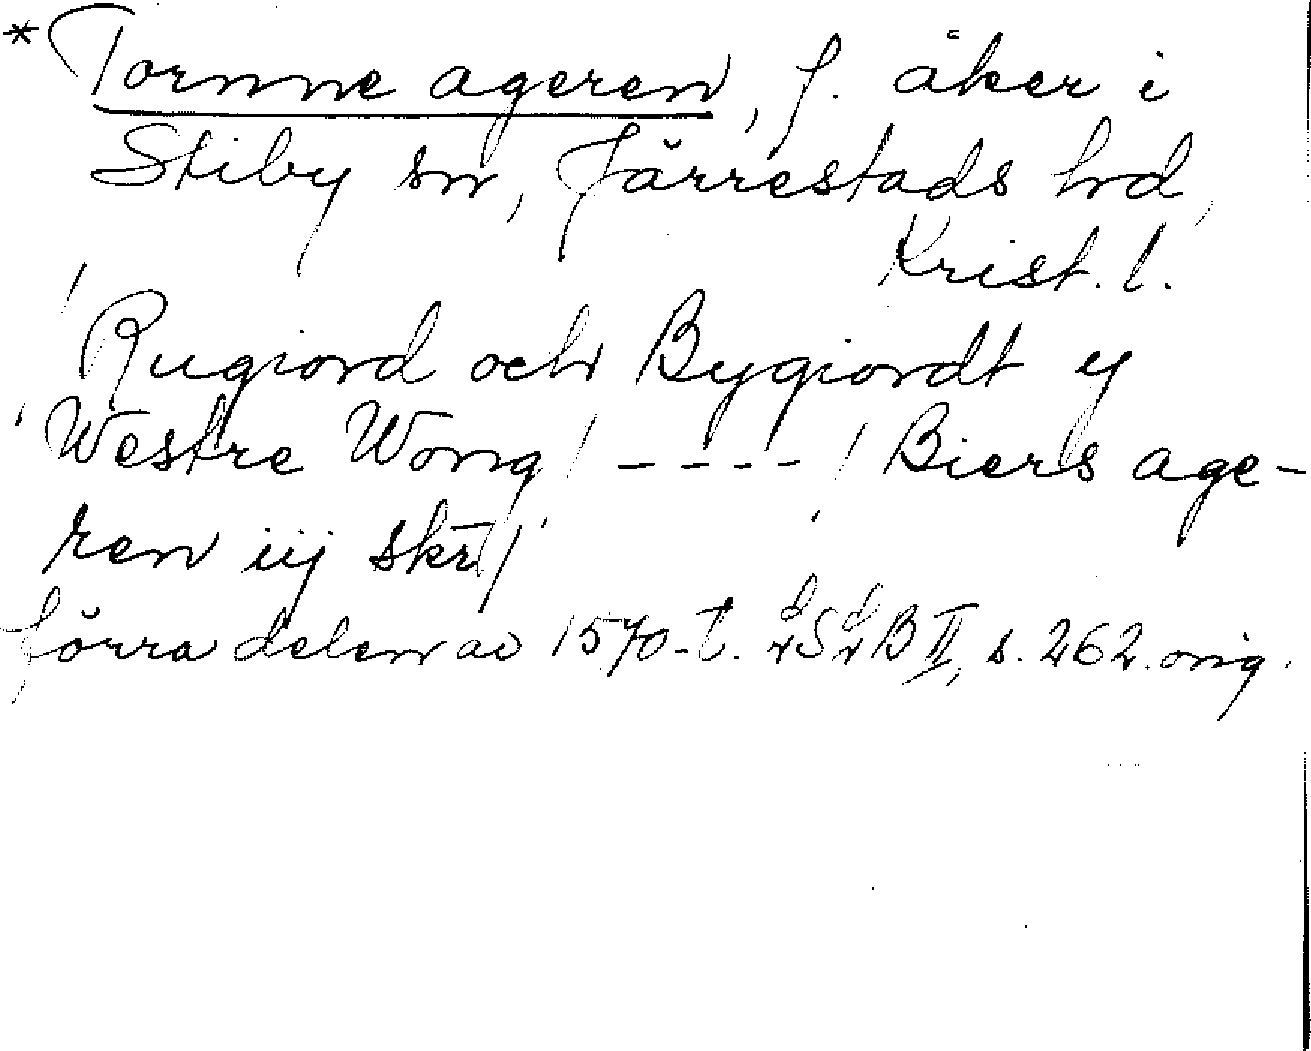 * Tornne ageren, f. åker i
Stiby sn, Järrestads hd,
Krist. l.
Rugiord och Bygiordt y
Westre Wong / ---- / Biers age-
ren iij skr /
förra delen av 1570-t. B II, s. 262. orig.